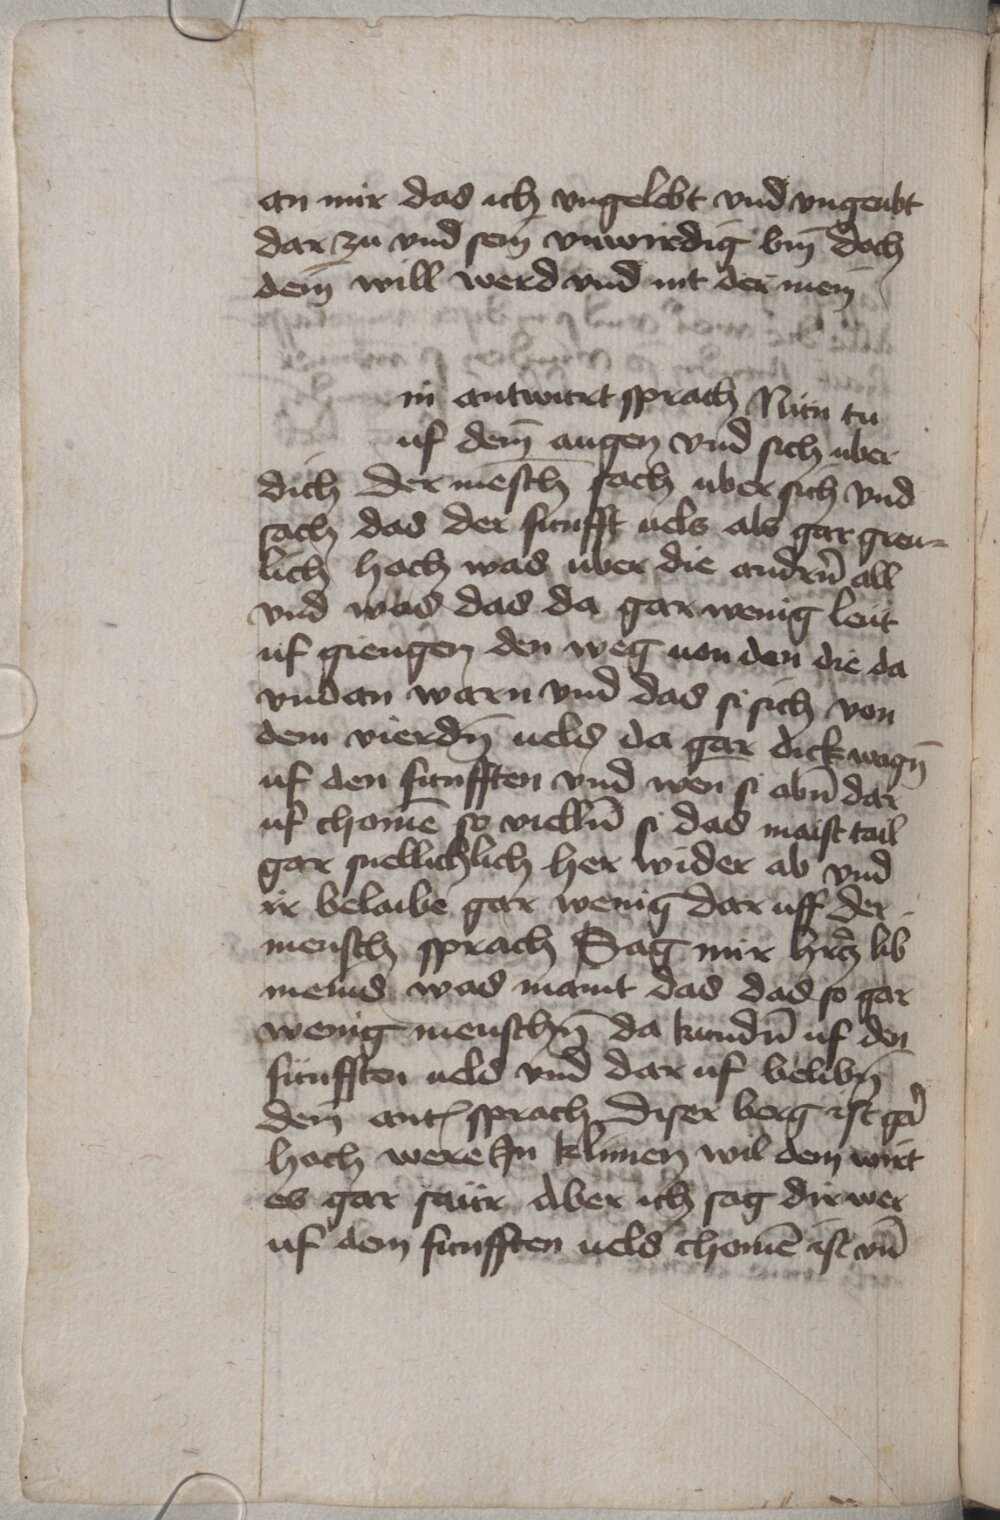 an mir das ich vngelebt vnd vngeubt
dar zu vnd sein vnwirdig bin doch
dein will werd vnd nit der mein
in antwurt sprach Nun tu
uf dein augen vnd sich uber
dich Der mēsch sach uber sich vnd
sach das der funfft uels als gar greu-
lich hoch was uber die andrn̄ all
vnd was das da gar wenig leut
uf giengen den weg uon den die da
vndan warn vnd das si sich von
dem vierdn̄ uels da gar dick wagn̄
uf den funfften vnd wen si abn̄ dar
uf chomē so vielln̄ si das maist tail
gar snellichlich her wider ab vnd
ir belaibe gar wenig dar uff der
mensch sprach Sag mir hercz lib
meins was maint das das so gar
wenig menschn̄ da kundn̄ uf den
funfften uels vnd dar uf belibn̄
dein ant sprach Diser berg ist gar
hoch were In klimen wil dem wirt
es gar saur Aber ich sag dir wer
uf dem funfften uels chomē ist vn̄